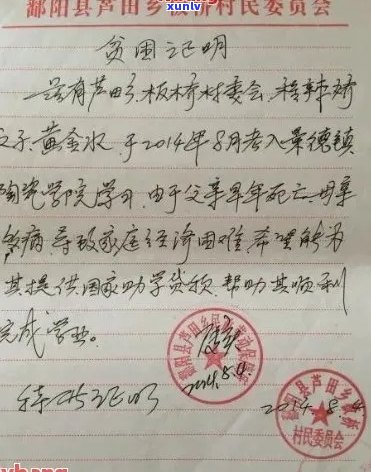 xunlv
鄱阳县芦田乡板桥村民委员会
贫困证明
兹有芦田乡板桥村委会
之子黄金水，于2014年8月考入景德镇
陶瓷学院学习，由于父亲早年死亡，母亲
多病，导致家庭经济困难，希望能为
其提供国家助学贷款，帮助其顺利
完成学业。
特此证明
2014.8.4
2014.8.4
鄱阳县芦田乡
鄱阳县芦田乡板桥
村民委员会